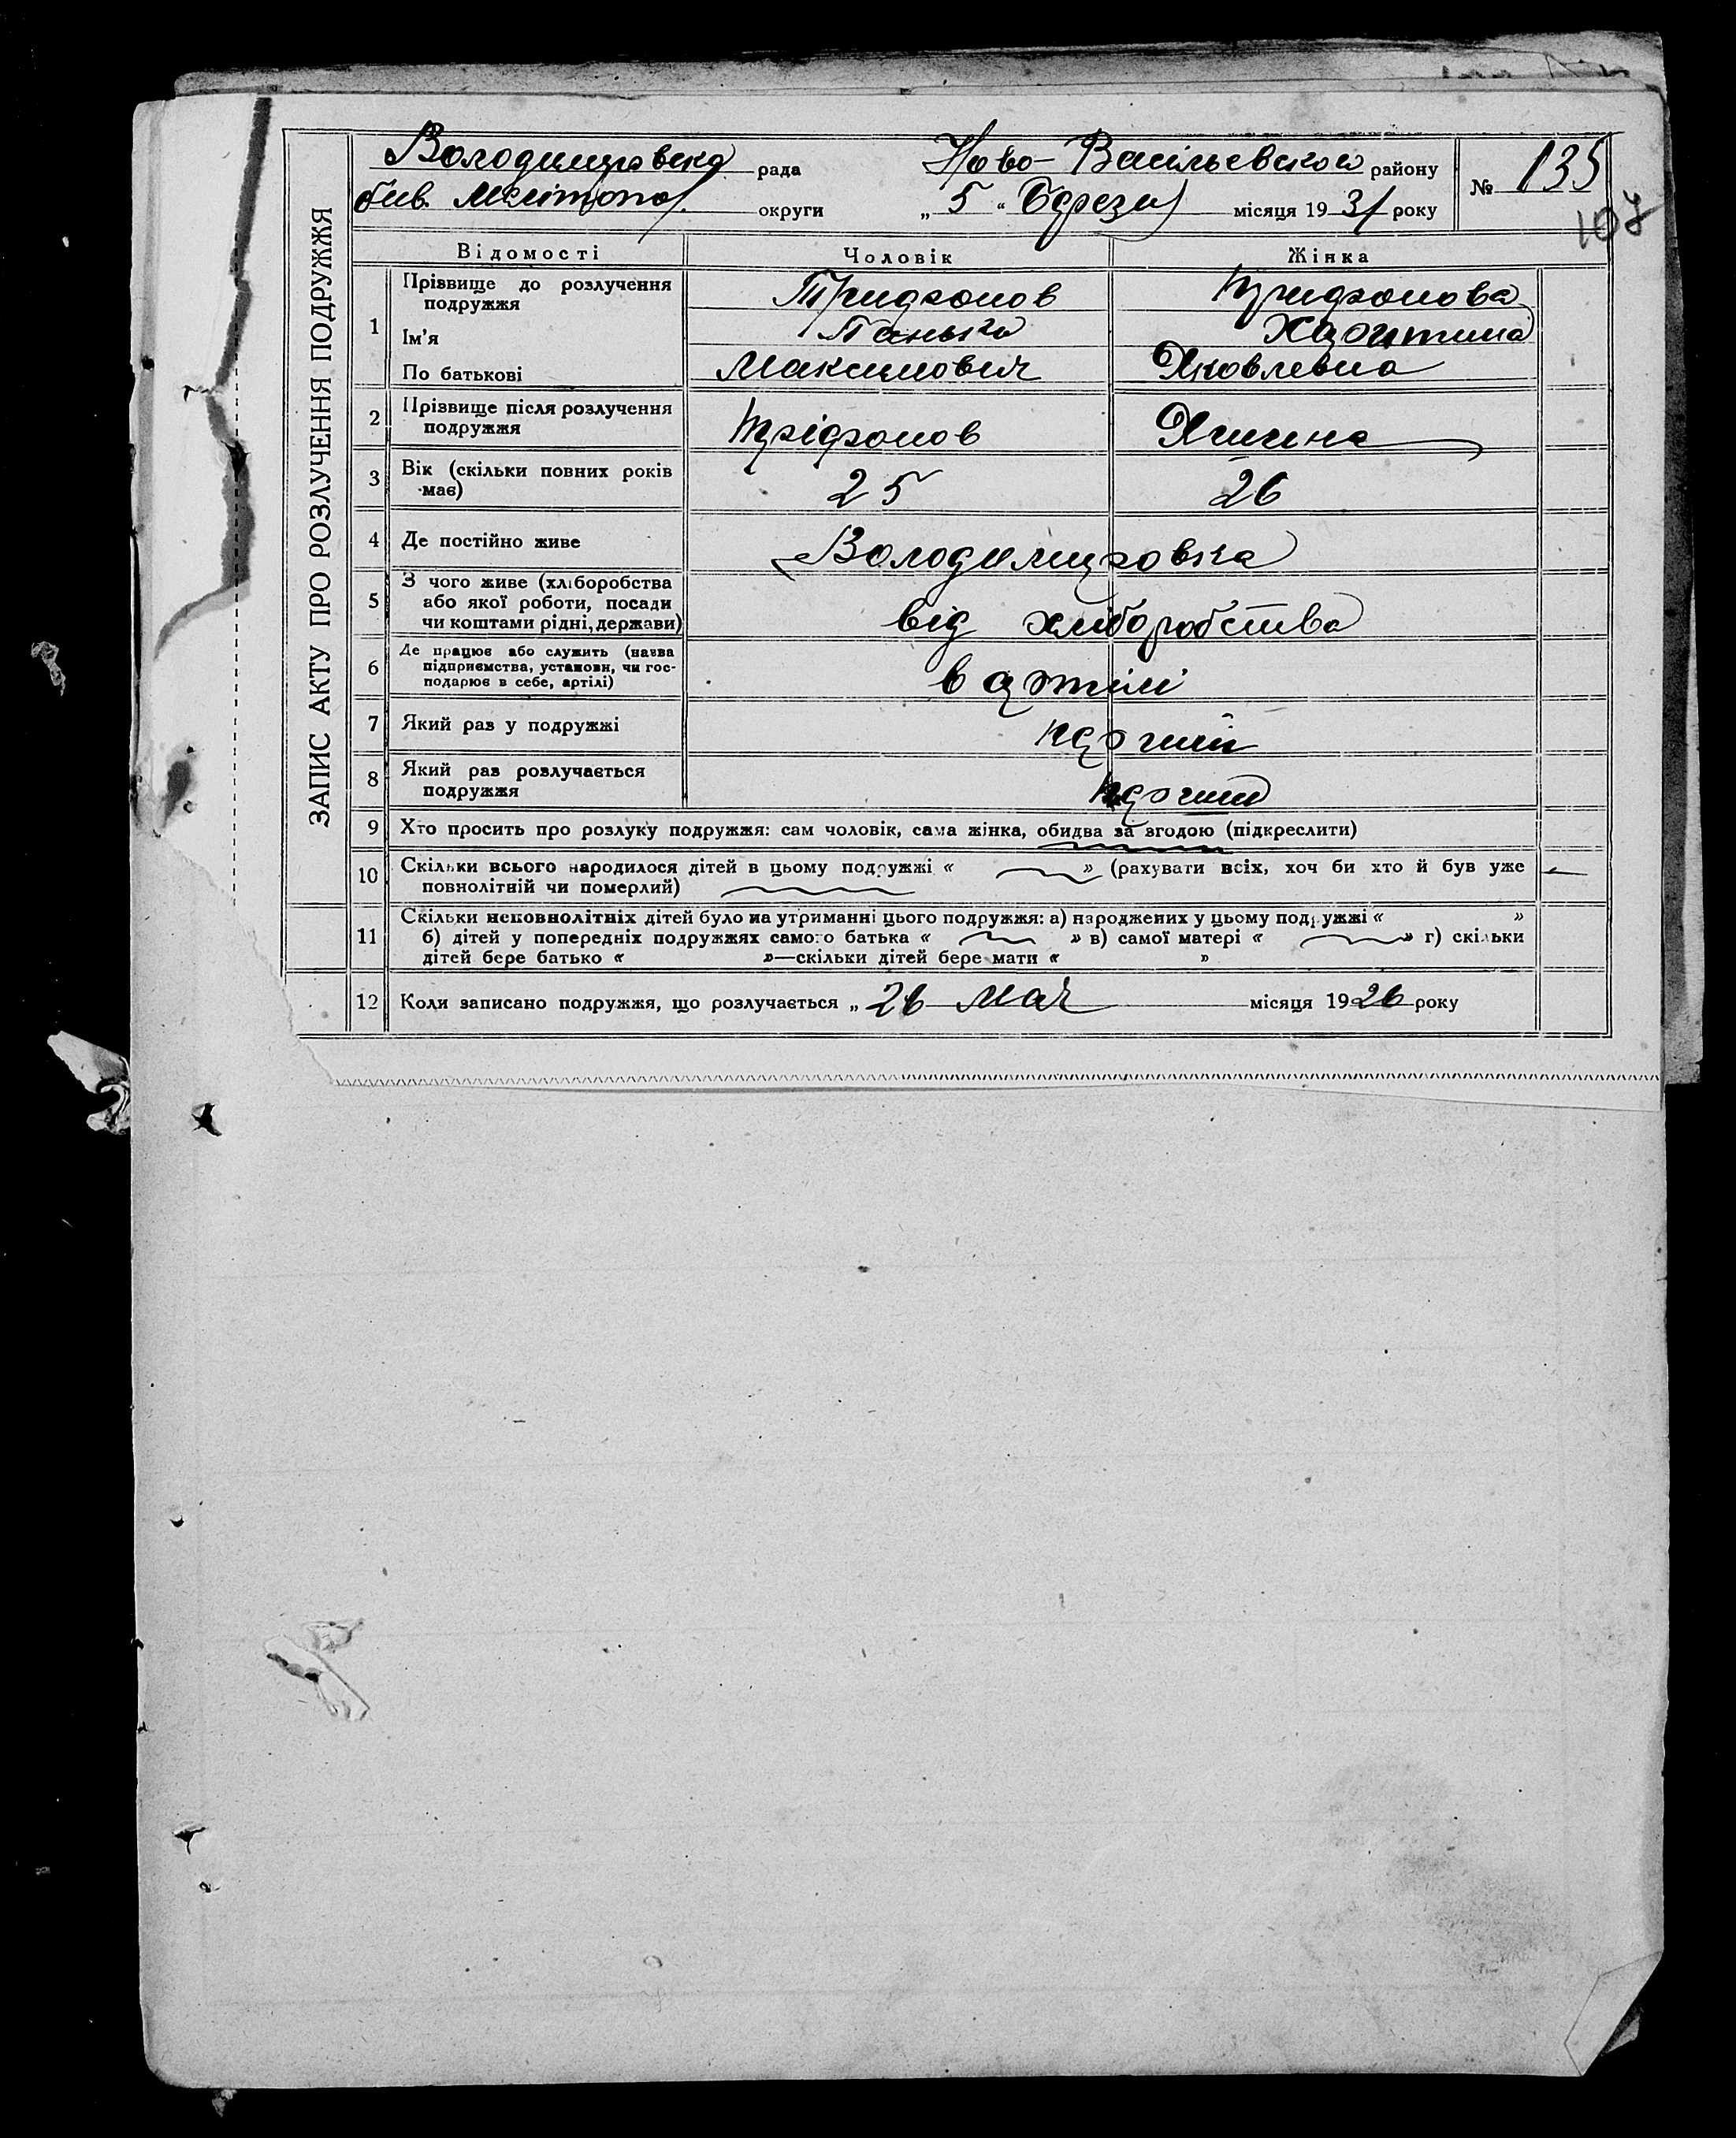 ЗАПИС АКТУ ПРО РОЗЛУЧЕННЯ ПОДРУЖЖЯ
Володимировска рада Ново-Васільєвского району № 135
бив. Мелітопол. округи „ 5 “ Березня місяця 1931 року
107
Відомості Чоловік Жінка
1 Прізвище до розлучення подружжя Трифонов Трифонова
Ім'я Панько Харитина
По батькові Максимович Яковлевна
2 Прізвище після розлучення
подружжя Тріфонов
3 Вік (скільки повних років
має) 25 26
4 Де постійно живе Володимировка
5 З чого живе (хліборобства
або якої роботи, посади
чи коштами рідні, держави) від хліборобства
6 Де працює або служить (назва
підприємства, установи, чи гос-
подарює в себе, артілі) в артілі
7 Який раз у подружжі перший
8 Який раз розлучається
подружжя перший
9 Хто просить про розлуку подружжя: сам чоловік, сама жінка, обидва за згодою (підкреслити)
10 Скільки всього народилося дітей в цьому подружжі « » (рахувати всіх, хоч би хто й був уже
повнолітній чи померлий)
11 Скільки неповнолітніх дітей було на утриманні цього подружжя: а) народжених у цьому подружжі « »
б) дітей у попередніх подружжях самого батька « » в) самої матері « » г) скільки
дітей бере батько « »—скільки дітей бере мати « »
12 Коли записано подружжя, що розлучається „ 26 Мая місяця 1926 року